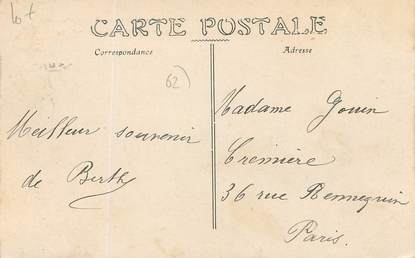 Lot
CARTE POSTALE
Correspondance
Adresse
62)
Meilleur souvenir
de Berthe
Madame Gouin
Cremière
36 rue Rennequin
Paris.